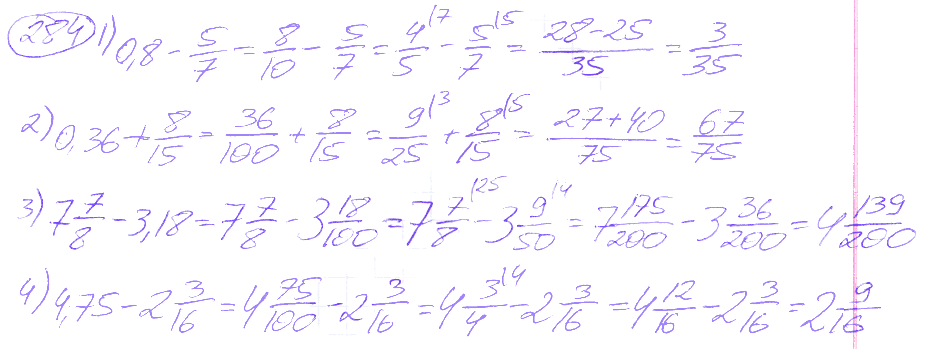 284 1) 0,8 - 5/7 = 8/10 - 5/7 = 4/5 |7 - 5/7 |5 = (28-25)/35 = 3/35
2) 0,36 + 8/15 = 36/100 + 8/15 = 9/25 |3 + 8/15 |5 = (27+40)/75 = 67/75
3) 7 7/8 - 3,18 = 7 7/8 - 3 18/100 = 7 7/8 |25 - 3 9/50 |4 = 7 175/200 - 3 36/200 = 4 139/200
4) 4,75 - 2 3/16 = 4 75/100 - 2 3/16 = 4 3/4 |4 - 2 3/16 = 4 12/16 - 2 3/16 = 2 9/16